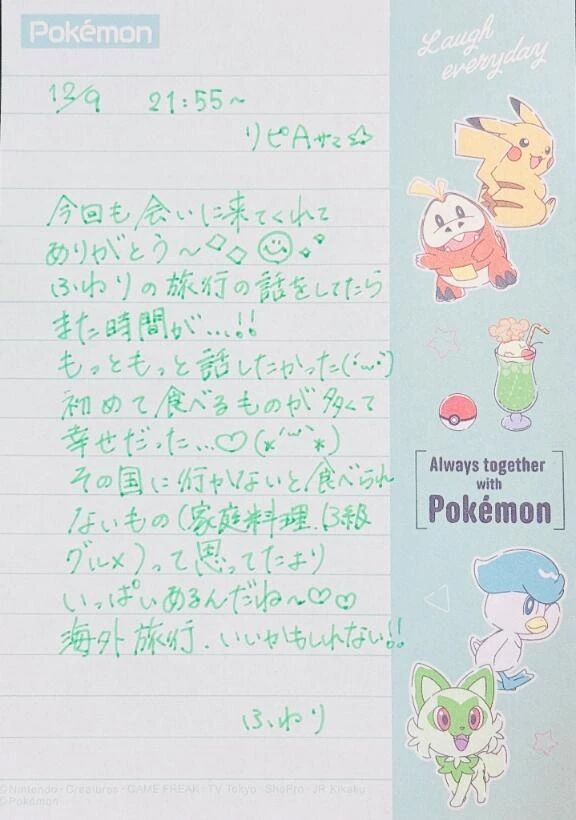 Pokémon
Laugh
everyday
12/9 21:55～
リピAサマ☆
今回も会いに来てくれて
ありがとう～◇◇☺◇
ふわりの旅行の話をしてたら
また時間が...!!
もっともっと話したかった(´･･`)
初めて食べるものが多くて
幸せだった...♡(*´`*)
その国に行かないと食べられ
ないもの(家庭料理.B級
グルメ)って思ってたより
いっぱいあるんだね～♡♡
海外旅行.いいかもしれない!!
ふわり
Always together
with
Pokémon
©Nintendo・Creatures・GAME FREAK・TV Tokyo・ShoPro・JR Kikaku
©Pokémon